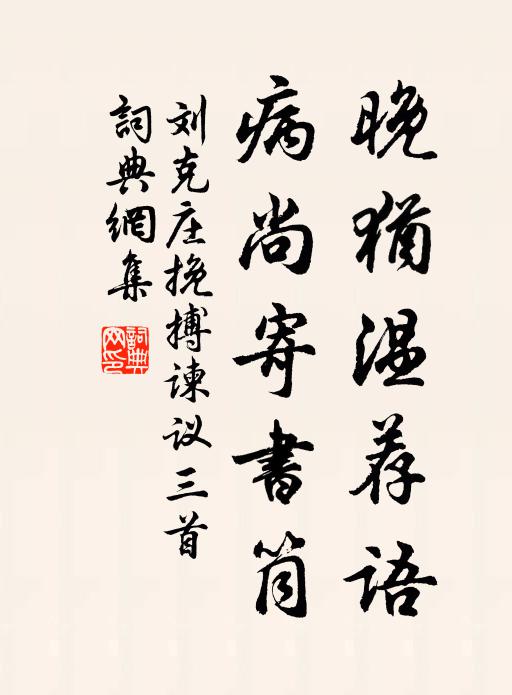 晚猶温荐语
病尚寄書筒
刘克庄挽搏谏议三首
詞典網集
詞典网印